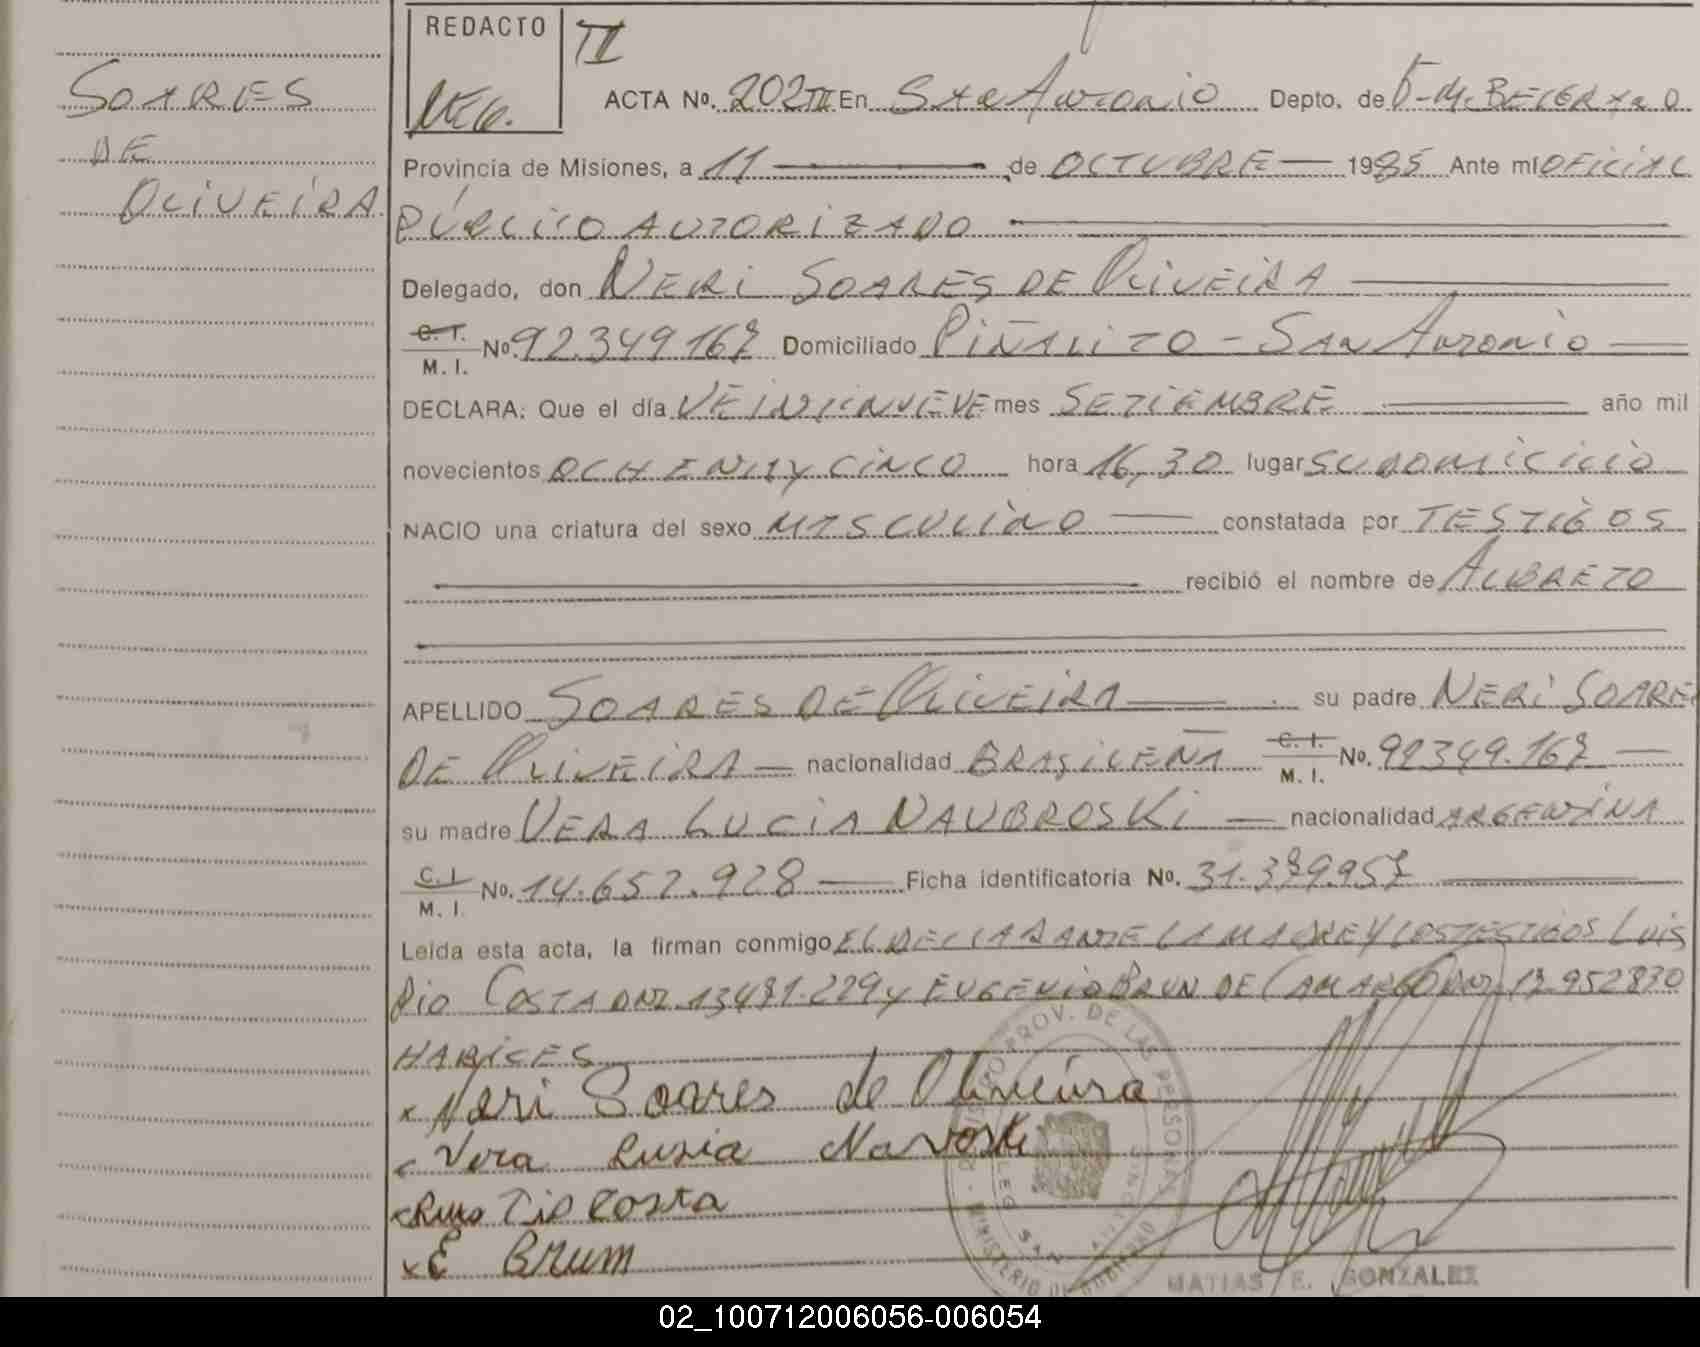 REDACTO
TI
SOARES
DE
OLIVEIRA
ACTA No. 202 TII En San Antonio Depto. de G-M. BELGRANO
Provincia de Misiones, a 11 de OCTUBRE 1985 Ante mi OFICIAL
PÚBLICO AUTORIZADO
Delegado, don NERI SOARES DE OLIVEIRA
C. I. M. I. No. 92.349167 Domiciliado PIÑALITO - SAN ANTONIO
DECLARA: Que el día VEINTINUEVE mes SETIEMBRE año mil
novecientos OCHENTA Y CINCO hora 16,30 lugar SU DOMICILIO
NACIO una criatura del sexo MASCULINO constatada por TESTIGOS
recibió el nombre de ALBRETO
APELLIDO SOARES DE OLIVEIRA su padre NERI SOARES
DE OLIVEIRA nacionalidad BRASILEÑA C. I. M. I. No. 92349.167
su madre VERA LUCIA NAUBROSKI nacionalidad ARGENTINA
C. I. M. I. No. 14.657.928 Ficha identificatoria No. 31.379.957
Leída esta acta, la firman conmigo EL DECLARANTE LA MADRE Y LOS TESTIGOS LUIS
COSTA DNI 13481.229 y EUGENIO BRUN DE CAMARGO DNI 12.952830
HABILES
x Neri Soares de Oliveira
x Vera Lusia Navroski
x Costa
x E Brum
REGISTRO PROV. DE LAS PERSONAS
MINISTERIO DE GOBIERNO
SAN ANTONIO
MATIAS E. GONZALEZ
02_100712006056-006054